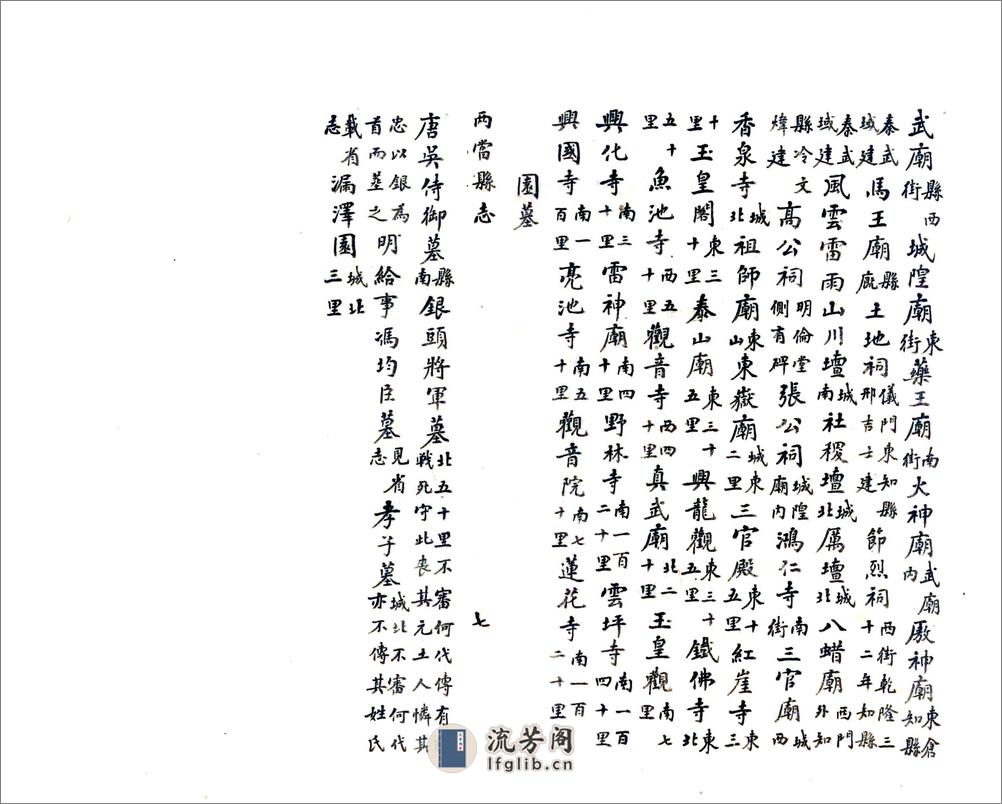 武廟縣西街城隍廟東街藥王廟南街火神廟武廟內廒神廟東倉知縣
秦武域建馬王廟縣廄土地祠儀門東知縣邢吉士建節烈祠西街乾隆三十二年知縣
秦武域建風雲雷雨山川壇城南社稷壇城北厲壇城北八蜡廟西門外知
縣冷文煒建高公祠明倫堂側有碑張公祠城隍廟內鴻仁寺南街三官廟城西
香泉寺城北祖師廟東山東嶽廟城東二里三官殿東十五里紅崖寺東三
十里玉皇閣東三十里泰山廟東三十五里興龍觀東三十五里鐵佛寺東北
五十里魚池寺西五十里觀音寺西四十里真武廟北二十里玉皇觀南七里
興化寺南三十里雷神廟南四十里野林寺南一百二十里雲坪寺南一百四十里
興國寺南一百里亮池寺南五十里觀音院南七十里蓮花寺南一百二十里
園墓
兩當縣志 七
唐吳侍御墓縣南銀頭將軍墓北五十里不審何代傳有戰死守此喪其元土人憐其
忠以銀為首而葬之明給事馮均臣墓見省志孝子墓城北不審何代亦不傳其姓氏
載省志漏澤園城北三里
流芳阁
lfglib.cn